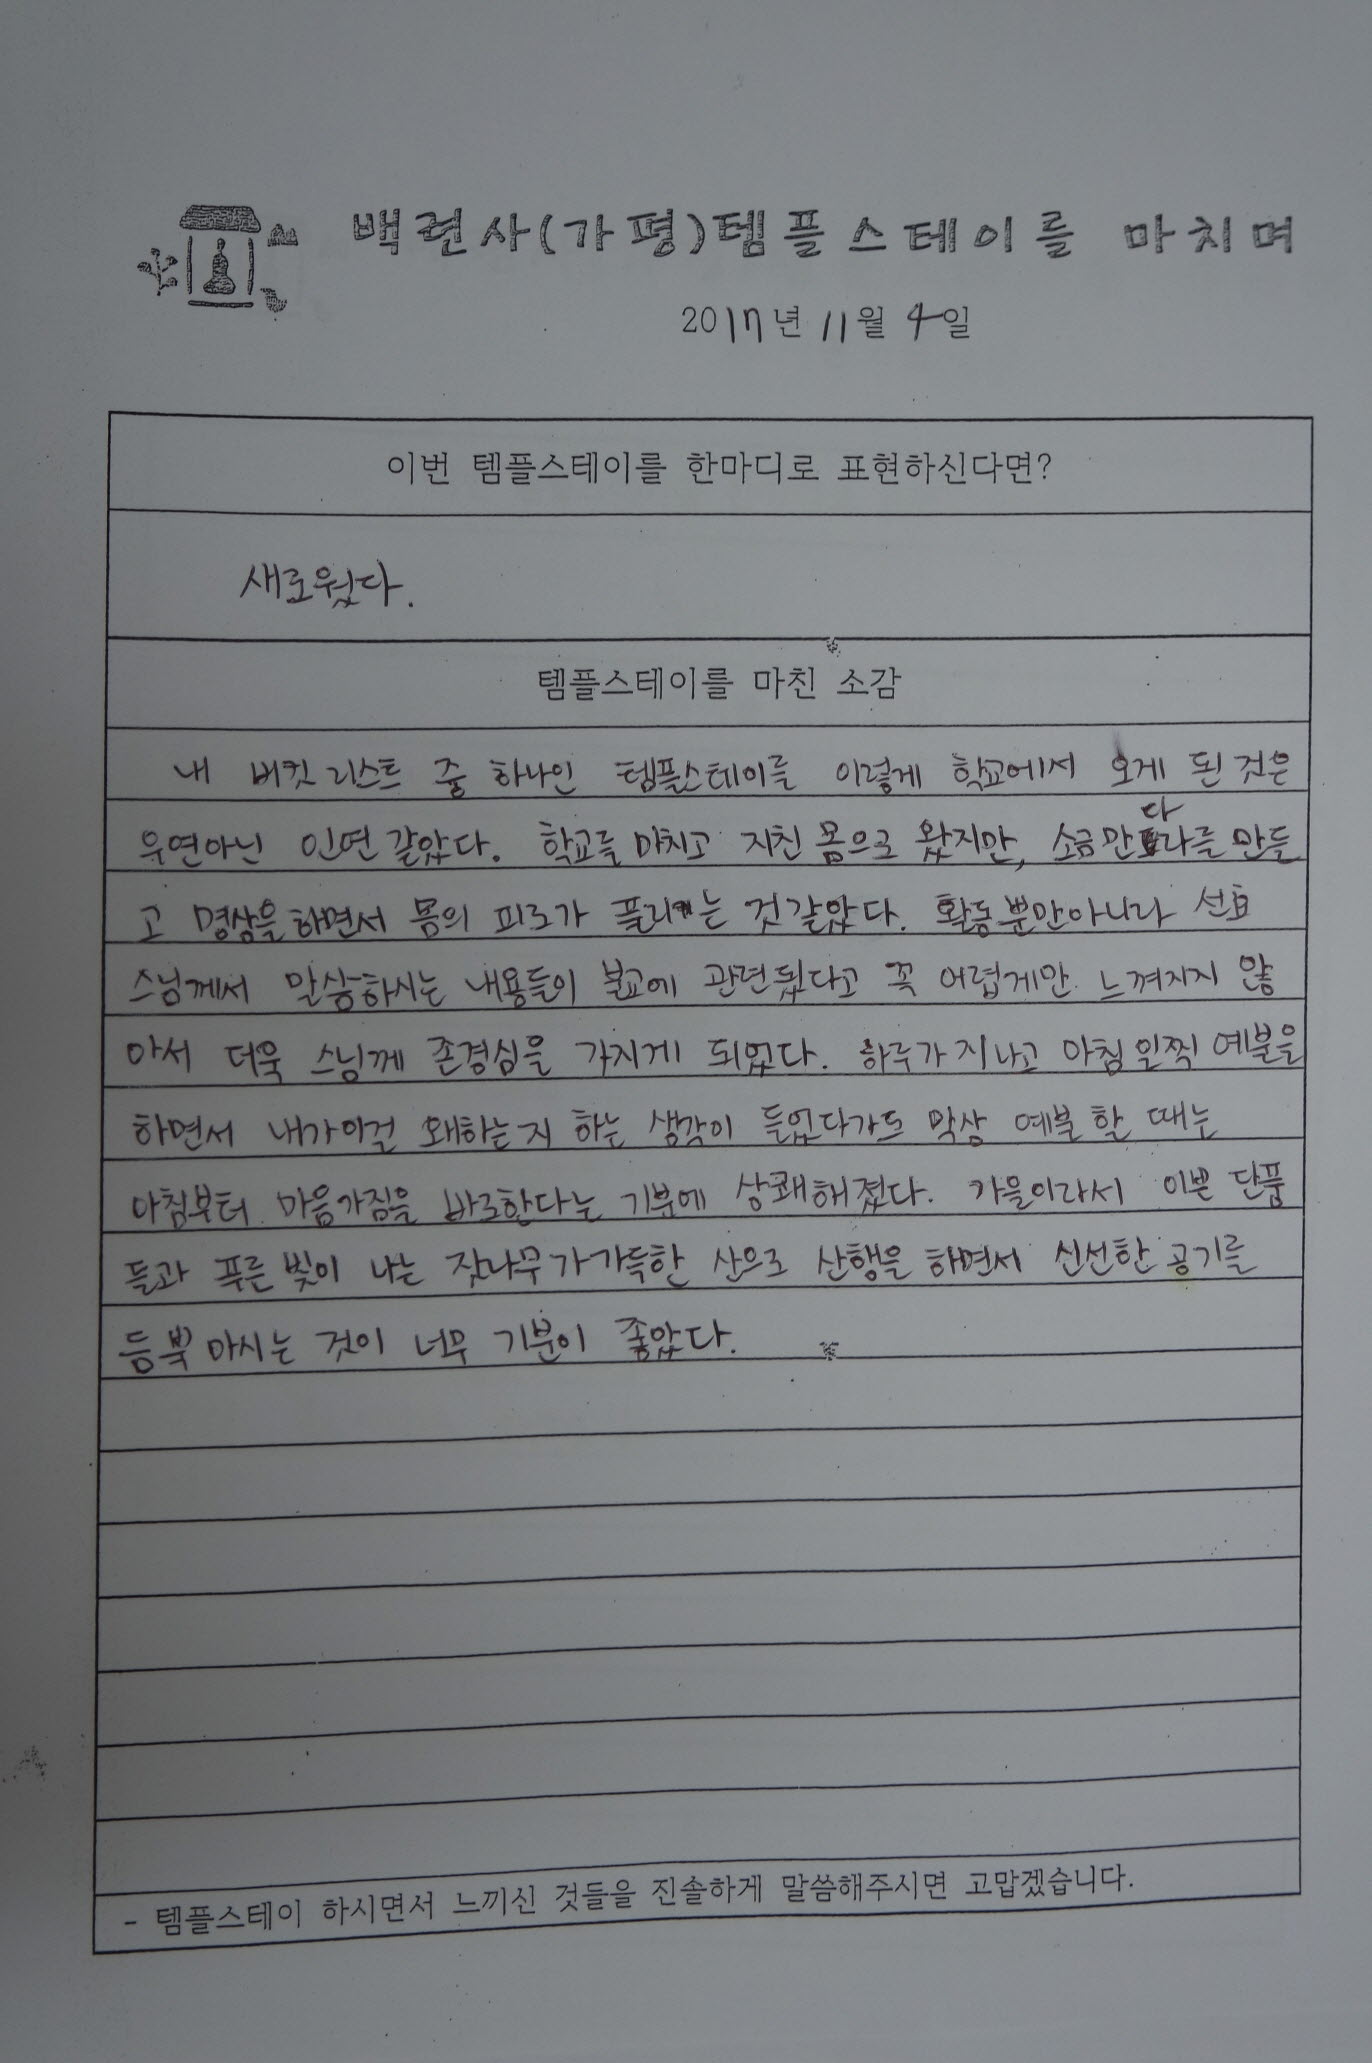 백련사(가평)템플스테이를 마치며
2017년 11월 4일
이번 템플스테이를 한마디로 표현하신다면?
새로웠다.
템플스테이를 마친 소감
내 버킷 리스트 중 하나인 템플스테이를 이렇게 학교에서 오게 된 것은
우연아닌 인연 같았다. 학교를 마치고 지친 몸으로 왔지만, 소금만다라를 만들
고 명상을하면서 몸의 피로가 풀리는 것같았다. 활동뿐만아니라 선효
스님께서 말씀하시는 내용들이 불교에 관련됬다고 꼭 어렵게만 느껴지지 않
아서 더욱 스님께 존경심을 가지게 되었다. 하루가 지나고 아침 일찍 예불을
하면서 내가이걸 왜하는지 하는 생각이 들었다가도 막상 예불 할 때는
아침부터 마음가짐을 바로한다는 기분에 상쾌해졌다. 가을이라서 이쁜 단풍
들과 푸른 빛이 나는 잣나무가가득한 산으로 산행을 하면서 신선한 공기를
듬뿍 마시는 것이 너무 기분이 좋았다.
- 템플스테이 하시면서 느끼신 것들을 진솔하게 말씀해주시면 고맙겠습니다.